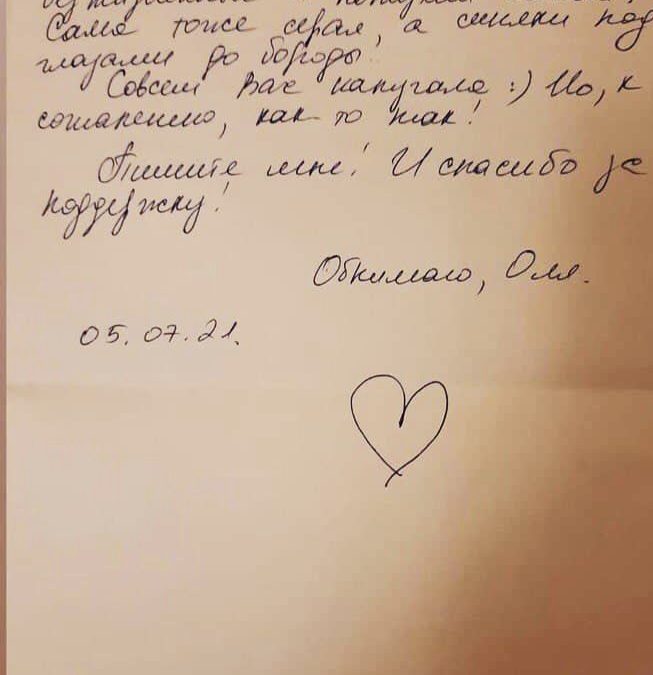 Сама тоже серая, а синяки под
глазами до бороды!
Совсем Вас напугала :) Но, к
сожалению, как-то так!
Пишите мне! И спасибо за
поддержку!
Обнимаю, Оля.
05.07.21.